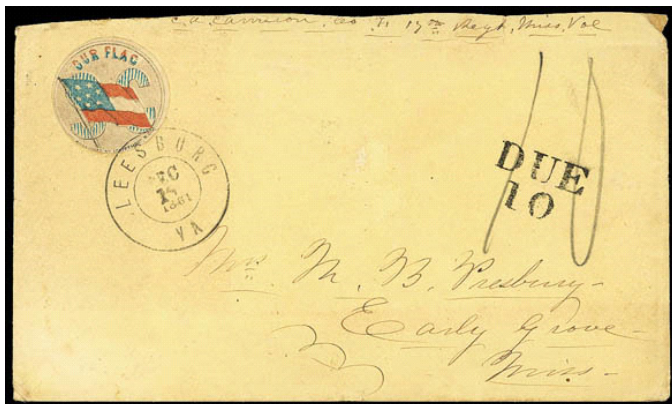 Co. F. 17th Regt, Miss, Vol
OUR FLAG
CS
LEESBURG
DEC
1861
VA
10
DUE
10
Mrs. M. B. Presbury-
Early Grove-
Miss-